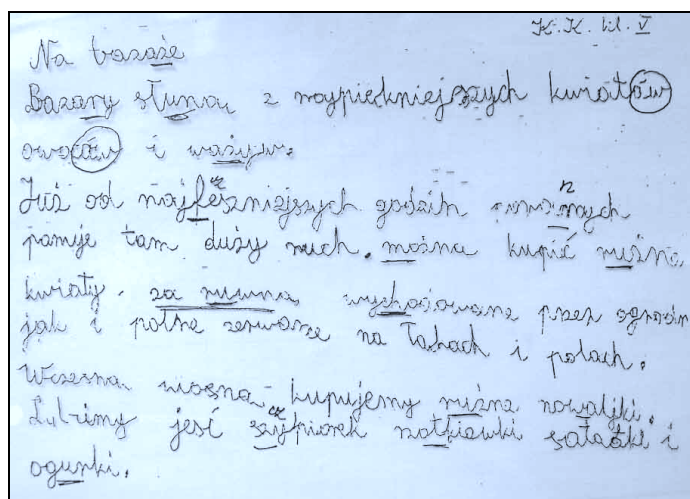 K. K. kl. V
Na bazaże
Bazary słuną z najpiękniejszych kwiatów
owoców i ważyw.
Już od najfeszniejszych godzin rannych
panuje tam duży ruch. można kupić rużne
kwiaty. za ruwna wychodowane przez ogrodn
jak i polne zerwane na łąkach i polach.
Wczesna wiosna kupujemy rużne nowaljki.
Lubimy jeść szypiorek rzotkiewki sałatki i
ogurki.